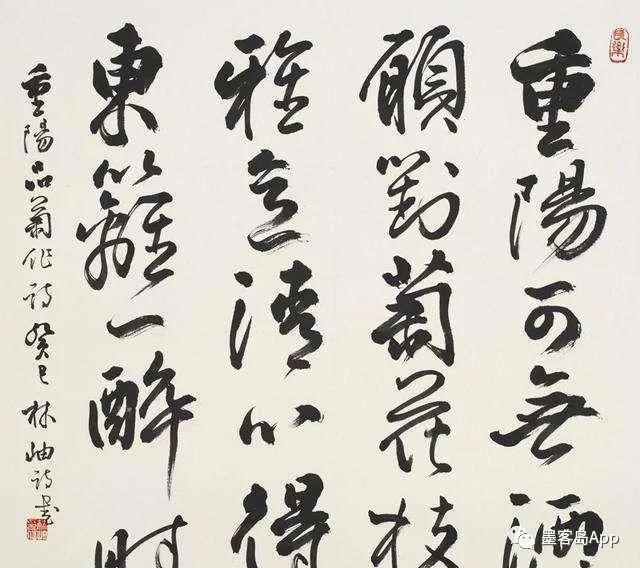 重陽可無酒
願對菊花枝
雅意清心得
東籬一醉時
重陽品菊作詩 癸巳 林岫詩書
墨客岛App